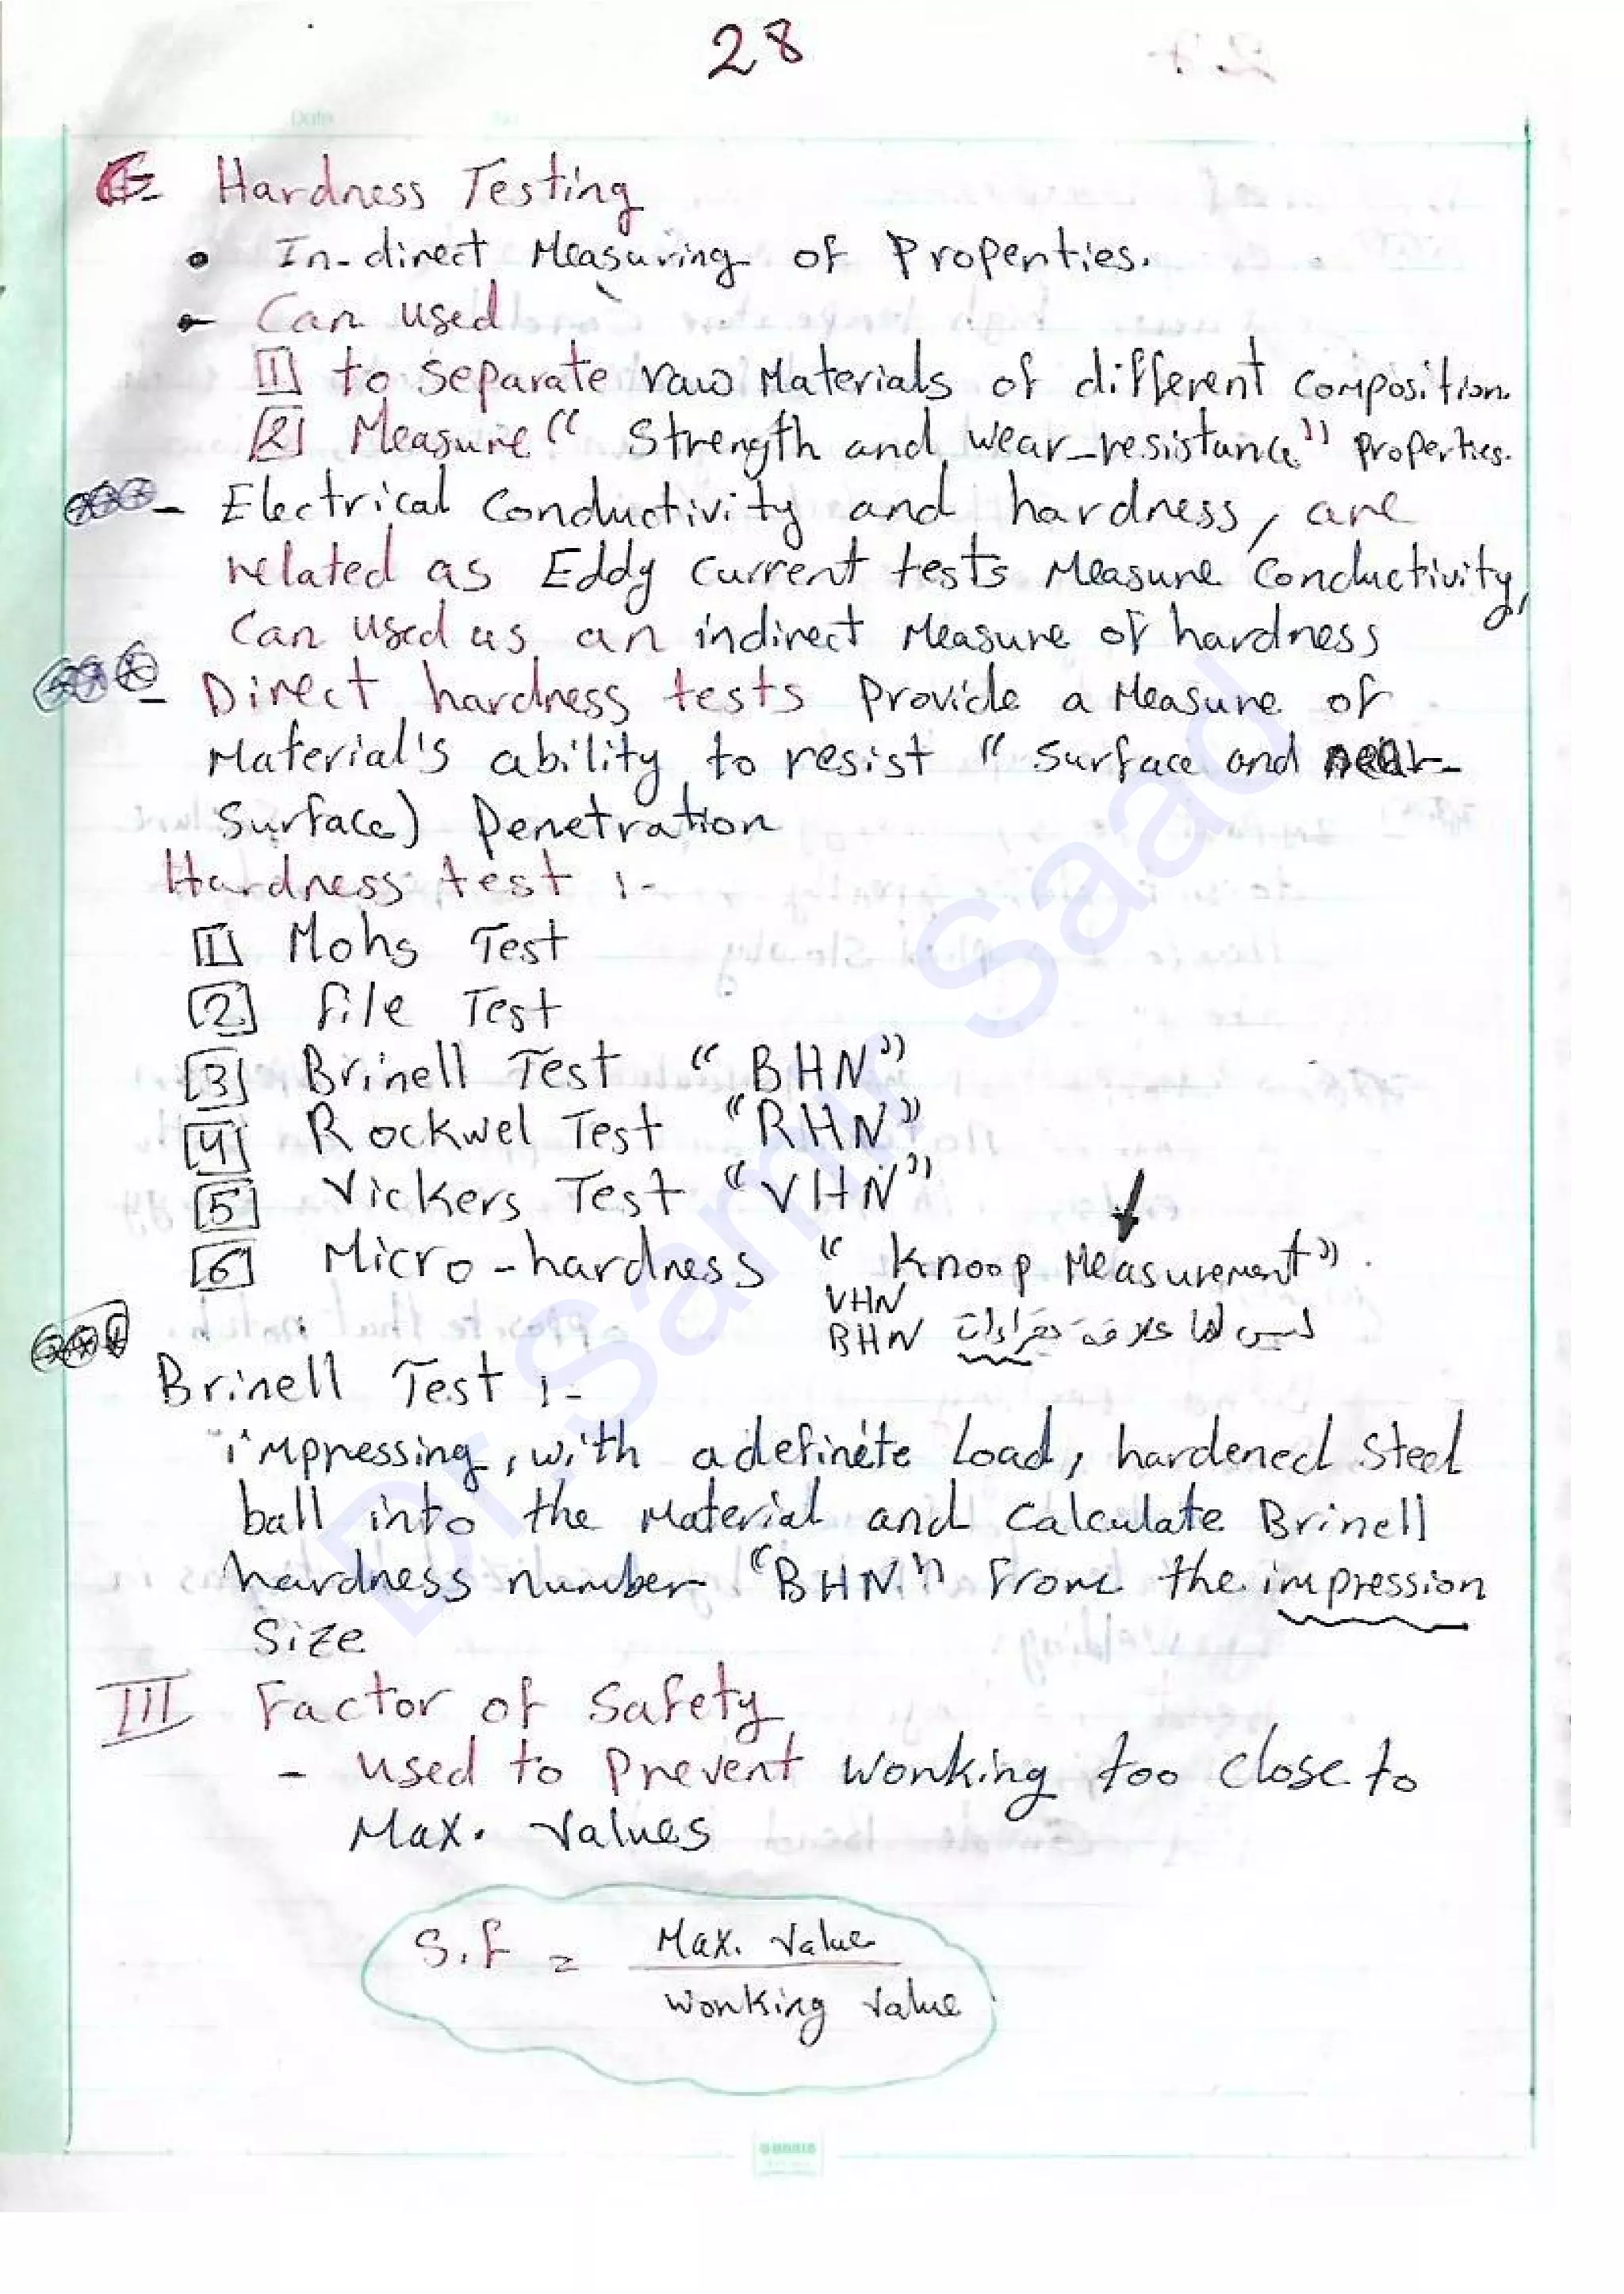 28
Date
G- Hardness Testing
• In-direct Measuring of Properties.
- Can used
1 to separate raw Materials of different composition.
2 Measure "Strength and wear-resistance" properties.
- Electrical Conductivity and hardness, are
related as Eddy current tests Measure Conductivity,
Can used as an indirect Measure of hardness
- Direct hardness tests Provide a Measure of
Material's ability to resist "Surface and near-
Surface) Penetration
Hardness test :-
1 Mohs Test
2 file Test
3 Brinell Test "BHN"
4 Rockwel Test "RHN"
5 Vickers Test "VHN"
6 Micro-hardness "Knoop Measurement".
VHN
BHN ليس لها علاقة بقراءات
Brinell Test :-
"impressing, with a definite Load, hardened Steel
ball into the Material and Calculate Brinell
hardness number "BHN" From the impression
Size
III Factor of Safety
- used to Prevent Working too close to
Max. Values
S.f = Max. Value
Working Value
Dr. Samir Saad